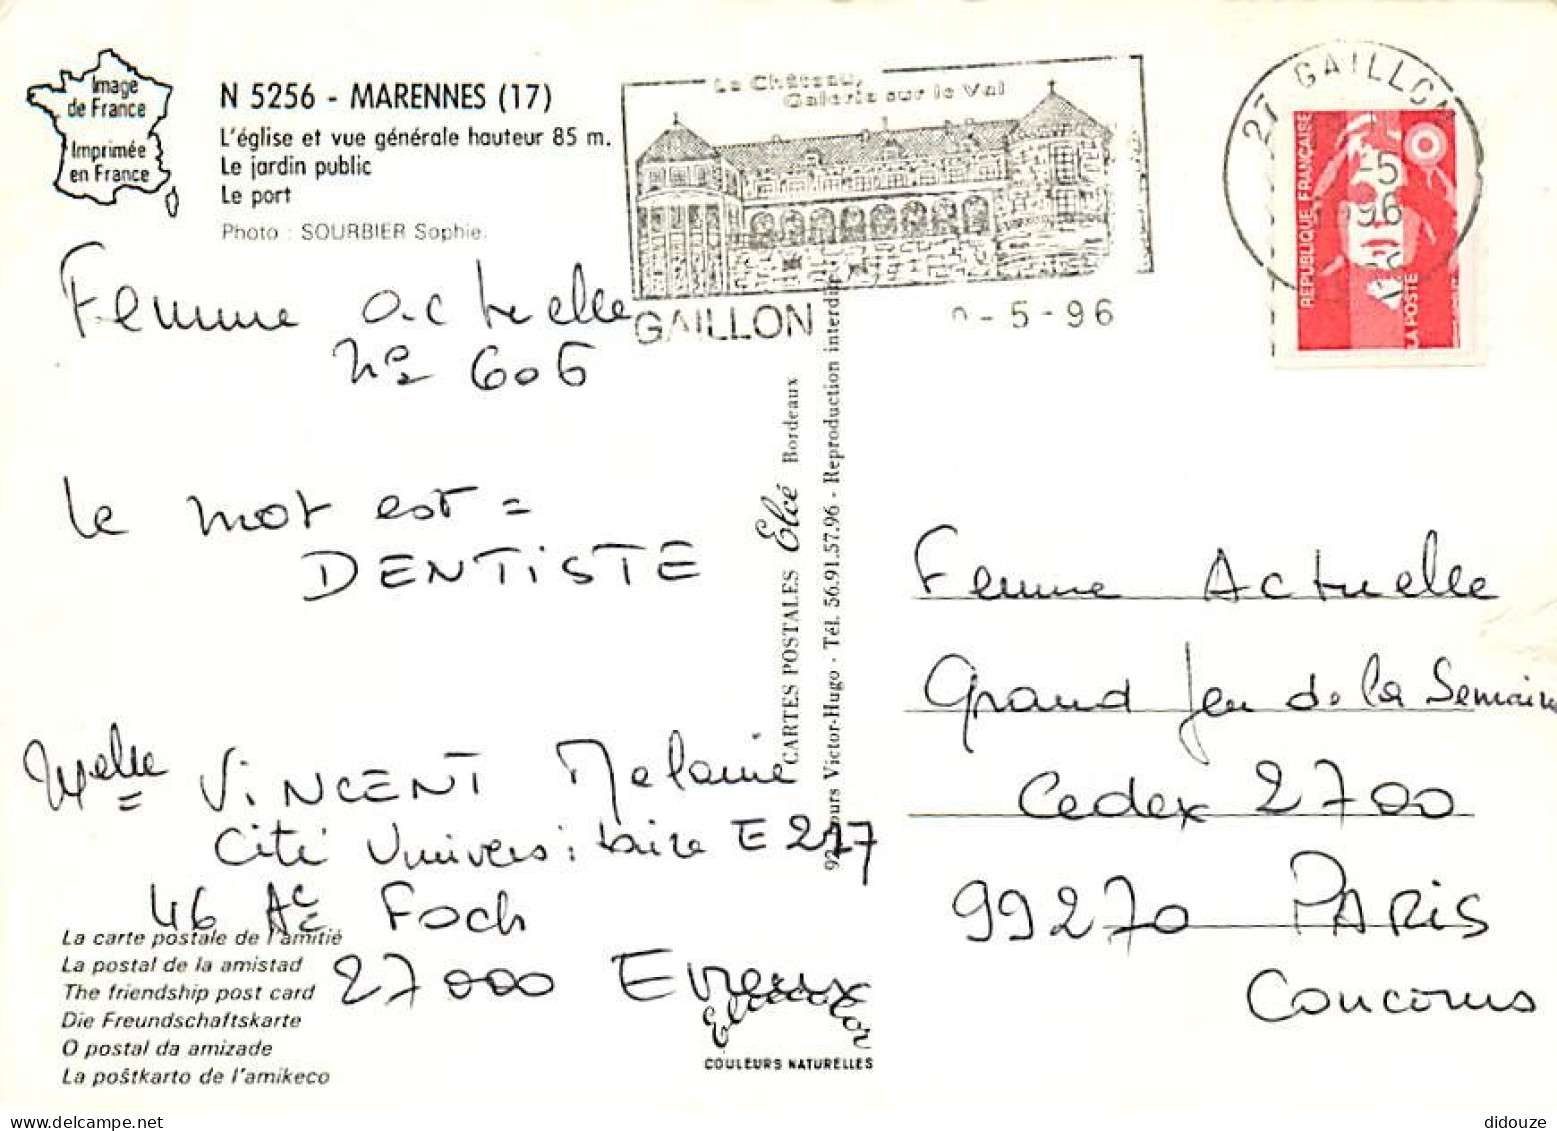 Image
de France
Imprimée
en France
N 5256 - MARENNES (17)
L'église et vue générale hauteur 85 m.
Le jardin public
Le port
Photo : SOURBIER Sophie.
Le Château,
Galerie sur le Val
GAILLON
-5-96
27 GAILLON
-5
96
RÉPUBLIQUE FRANÇAISE
LA POSTE
Femme actuelle
n° 606
le mot est =
DENTiSTE
Melle VINCENT Melanie
Cité Universitaire E 217
46 Ac Foch
27000 Evreux
La carte postale de l'amitié
La postal de la amistad
The friendship post card
Die Freundschaftskarte
O postal da amizade
La poŝtkarto de l'amikeco
CARTES POSTALES Elcé Bordeaux
92, cours Victor-Hugo - Tél. 56.91.57.96 - Reproduction interdite
Elcécolor
COULEURS NATURELLES
Femme Actuelle
Grand Jeu de la Semaine
Cedex 2700
99270 PARIS
Concours
didouze